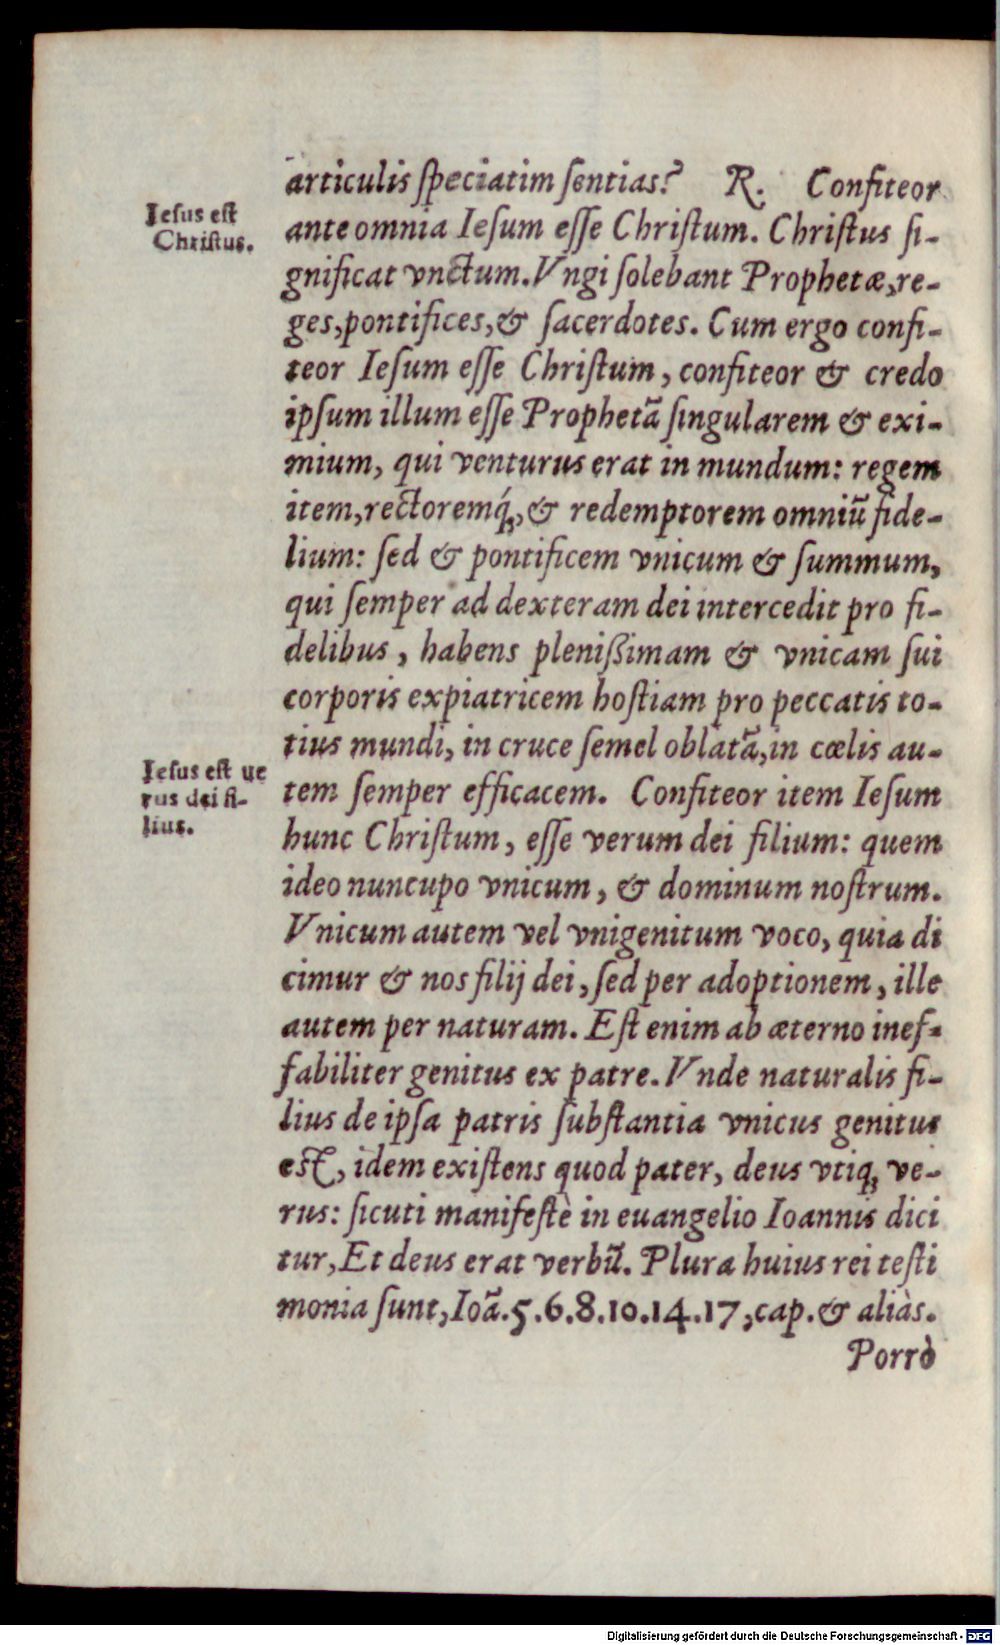 articulis ſpeciatim ſentias? R. Confiteor
Ieſus eſt
Chriſtus.
ante omnia Ieſum eſſe Chriſtum. Chriſtus ſi-
gnificat vnctum. Vngi ſolebant Prophetæ, re-
ges, pontifices, & ſacerdotes. Cum ergo confi-
teor Ieſum eſſe Chriſtum, confiteor & credo
ipſum illum eſſe Prophetã ſingularem & exi-
mium, qui venturus erat in mundum: regem
item, rectoremq́ꝫ, & redemptorem omniũ fide-
lium: ſed & pontificem vnicum & ſummum,
qui ſemper ad dexteram dei intercedit pro fi-
delibus, habens pleniſſimam & vnicam ſui
corporis expiatricem hoſtiam pro peccatis to-
tius mundi, in cruce ſemel oblatã, in cœlis au-
Ieſus eſt ue
rus dei fi-
lius.
tem ſemper efficacem. Confiteor item Ieſum
hunc Chriſtum, eſſe verum dei filium: quem
ideo nuncupo vnicum, & dominum noſtrum.
Vnicum autem vel vnigenitum voco, quia di
cimur & nos filij dei, ſed per adoptionem, ille
autem per naturam. Eſt enim ab æterno inef-
fabiliter genitus ex patre. Vnde naturalis fi-
lius de ipſa patris ſubſtantia vnicus genitus
est, idem exiſtens quod pater, deus vtiqꝫ ve-
rus: ſicuti manifeſtè in euangelio Ioannis dici
tur, Et deus erat verbũ. Plura huius rei teſti
monia ſunt, Ioã. 5. 6. 8. 10. 14. 17, cap. & aliàs.
Porrò
Digitalisierung gefördert durch die Deutsche Forschungsgemeinschaft - DFG